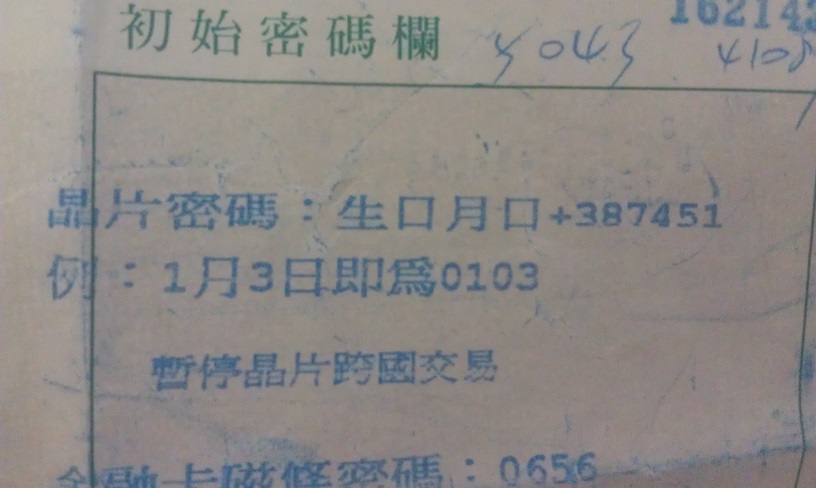 初始密碼欄 5043 162143
4108
晶片密碼：生口月口+387451
例：1月3日即為0103
暫停晶片跨國交易
金融卡磁條密碼：0656